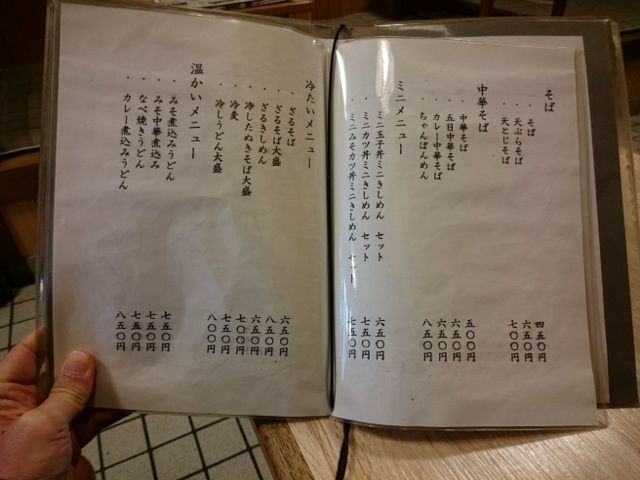 そば
・そば 四五〇円
・天ぷらそば 六五〇円
・天とじそば 七〇〇円
中華そば
・中華そば 五〇〇円
・五目中華そば 六五〇円
・カレー中華そば 六五〇円
・ちゃんぽんめん 八五〇円
ミニメニュー
・ミニ玉子丼ミニきしめん セット 七五〇円
・ミニカツ丼ミニきしめん セット 七五〇円
・ミニみそカツ丼ミニきしめん セット 七五〇円
冷たいメニュー
・ざるそば 六五〇円
・ざるそば大盛 八五〇円
・ざるきしめん 六五〇円
・冷したぬきそば大盛 七〇〇円
・冷麦 七五〇円
・冷しうどん大盛 八〇〇円
温かいメニュー
・みそ煮込みうどん 七五〇円
・みそ中華煮込み 七五〇円
・なべ焼きうどん 七五〇円
・カレー煮込みうどん 八五〇円